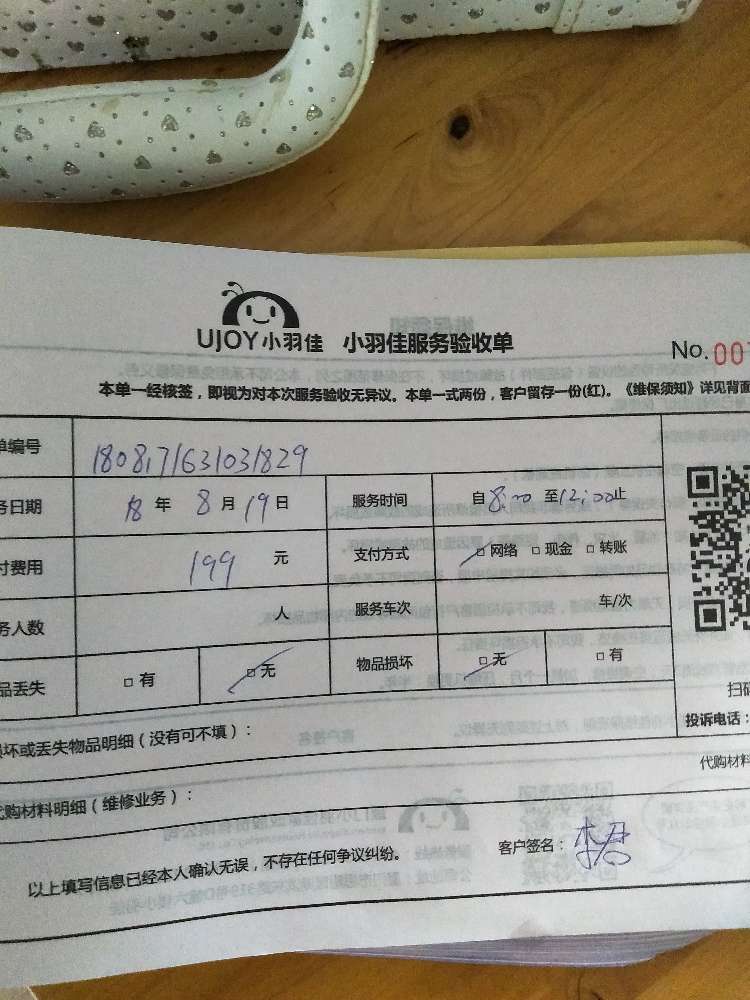 UJOY小羽佳 小羽佳服务验收单
No. 007
本单一经核签，即视为对本次服务验收无异议。本单一式两份，客户留存一份(红)。《维保须知》详见背面
单编号 1808171631031829
务日期 18 年 8 月 19 日 服务时间 自 8:00 至 12:00 止
付费用 199 元 支付方式 □ 网络 □ 现金 □ 转账
务人数 人 服务车次 车/次
品丢失 □ 有 □ 无 物品损坏 □ 无 □ 有
扫码
投诉电话：
损坏或丢失物品明细（没有可不填）：
代购材料
代购材料明细（维修业务）：
以上填写信息已经本人确认无误，不存在任何争议纠纷。 客户签名：李君